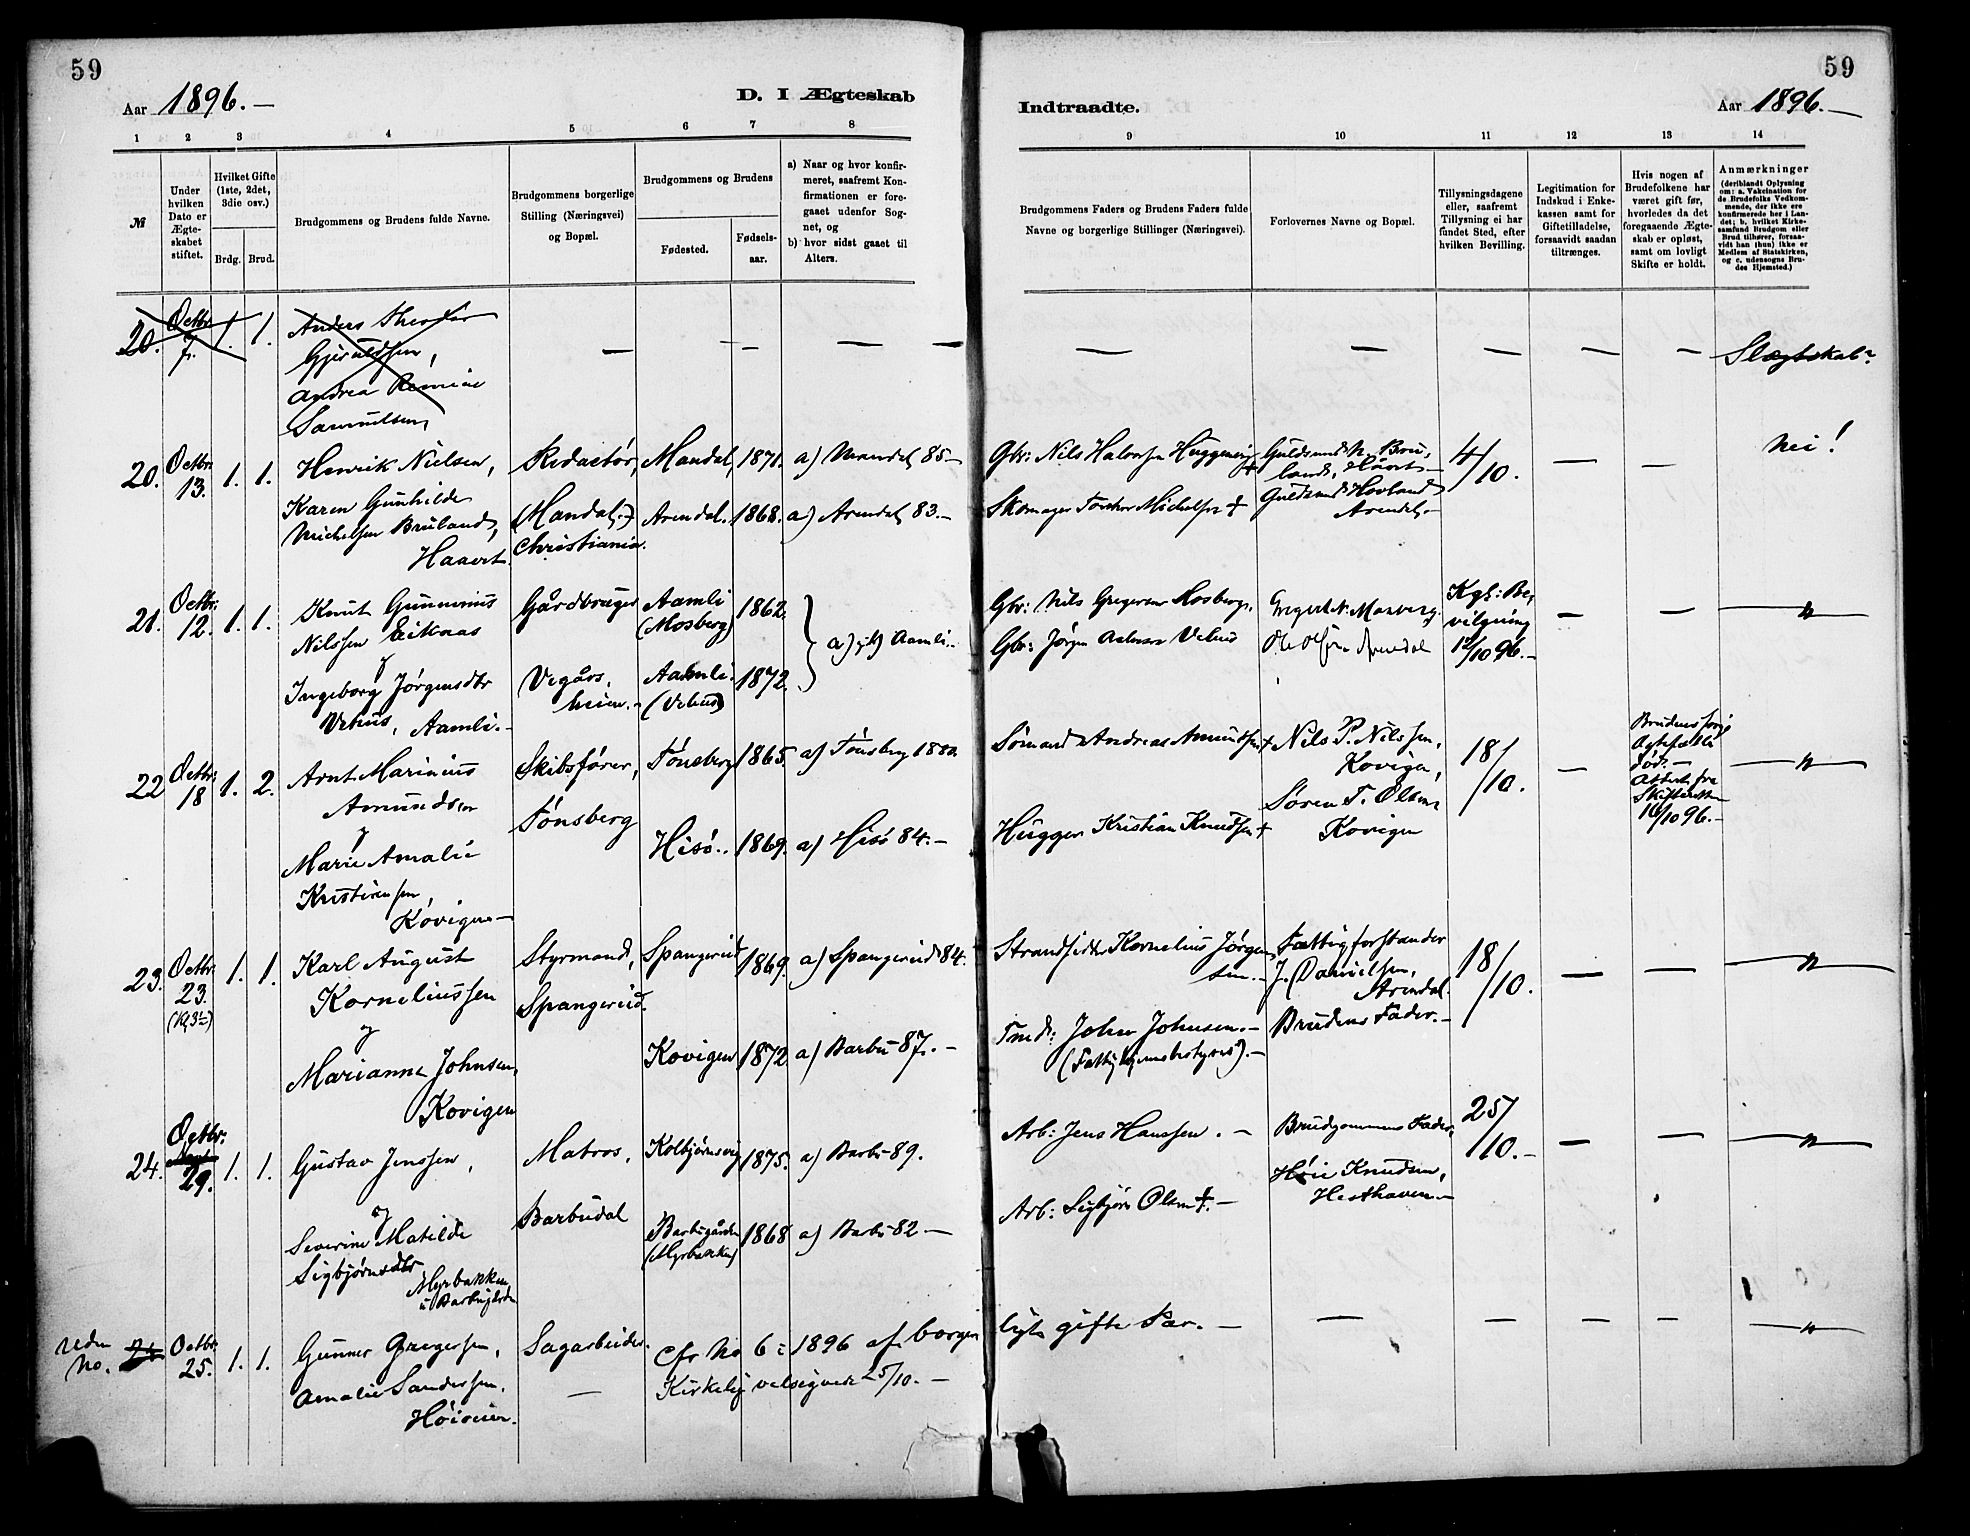 59
Aar 1896.—
D. I Ægteskab
1 2 3 4 5 6 7 8
№
Under hvilken Dato er Ægteskabet stiftet.
Hvilket Gifte (1ste, 2det, 3die osv.)
Brdg. Brud.
Brudgommens og Brudens fulde Navne.
Brudgommens borgerlige Stilling (Næringsvei) og Bopæl.
Brudgommens og Brudens
Fødested.
Fødselsaar.
a) Naar og hvor konfirmeret, saafremt Konfirmationen er foregaaet udenfor Sognet, og
b) hvor sidst gaaet til Alters.
20. Octbr. 7. 1. 1. Anders
Gjeruldsen,
Andrea
Samuelsen,
— — — — —
20. Octbr. 13. 1. 1. Henrik Nielsen, Redactør, Mandal, 1871. a) Mandal 85.—
Karen Gunhilde (Mandal.) Arendal. 1868. a) Arendal 83.—
Michelsen Bruland, Christiania.
Haavet.
21. Octbr: 12. 1. 1. Knut Gunnerius Gårdbruger Aamli 1862.
Nilssen Eiknas (Mosberg) a) Aamli.
Ingeborg Jørgensdtr Vegårs, Aamli. 1872.
Vehus, Aamli.— heien. (Vehus)
22 Octbr: 18 1. 2. Arnt Marinius Skibsfører, Tönsberg 1865. a) Tönsberg 1880.
Amundsen Tönsberg
Marie Amalie Hisö.. 1869. a) Hisö 84.—
Kristiansen,
Kovigen—
23. Octbr. 23. 1. 1. Karl August Styrmand, Spangereid 1869. a) Spangereid 84.
Korneliussen Spangereid.
og
Marianne Johnsen, Kovigen 1872. a) Barbu 87.—
Kovigen
24. Octbr: 29. 1. 1. Gustav Jenssen, Matros, Kolbjørnsvig 1875. a) Barbu 89.
og
Severine Matilde Barbudal Barbugården 1868 a) Barbu 82—
Sigbjørnsdtr (Myrbakken)
Myrbakken
Uden No. Octbr. 25. 1. 1. Gunner Gregersen, Sagarbeider. cfr No 6 : 1896 af borger
Amalie Sandersen, — Kirkelig velsignet 25/10.—
59
Indtraadte.
Aar 1896.—
9 10 11 12 13 14
Brudgommens Faders og Brudens Faders fulde Navne og borgerlige Stillinger (Næringsvei).
Forlovernes Navne og Bopæl.
Tillysningsdagene eller, saafremt Tillysning ei har fundet Sted, efter hvilken Bevilling.
Legitimation for Indskud i Enkekassen samt for Giftetilladelse, forsaavidt saadan tiltrænges.
Hvis nogen af Brudefolkene har været gift før, hvorledes da det foregaaende Ægteskab er opløst, samt om lovligt Skifte er holdt.
Anmærkninger (deriblandt Oplysning om: a. Vakcination for de Brudefolks Vedkommende, der ikke ere konfirmerede her i Landet; b. hvilket Kirkesamfund Brudgom eller Brud tilhører, forsaavidt han (hun) ikke er Medlem af Statskirken, og c. udensogns Brudes Hjemsted.)
— — — — — Slægtskab?
Gbr: Nils Halvorsen + Guldsmed N. Bruland, Haavet— 4/10. — — Nei!
Skomager Michelsen + Guldsmed Hovland Arendal.—
Gbr: Nils Gregersen Mosberg. Kgl: Bevilgning — — "
Gbr: Jörgen Vehus Ole Olsen Arendal 12/10 96.—
Sömand Andreas Amundsen + Nils P. Nilssen, 18/10. — Brudens forrige Ægtefælle död.— "
Kovigen, Attest fra Skifteretten 16/10 96.—
Hugger Kristian Knudsen + Sören T. Olsen, Kovigen
Strandsidder Kornelius Jørgensen.— Fattigforstander J. Danielsen, Arendal. 18/10. — — "
Tmd: John Johnsen.— Brudens Fader.—
Arb: Jens Hanssen.— Brudgommens Fader, 25/10.— — — "
Arb: Sigbjörn Olsen +.— Knudsen, Hesthaven—
ligt gifte Par.— — — — — "